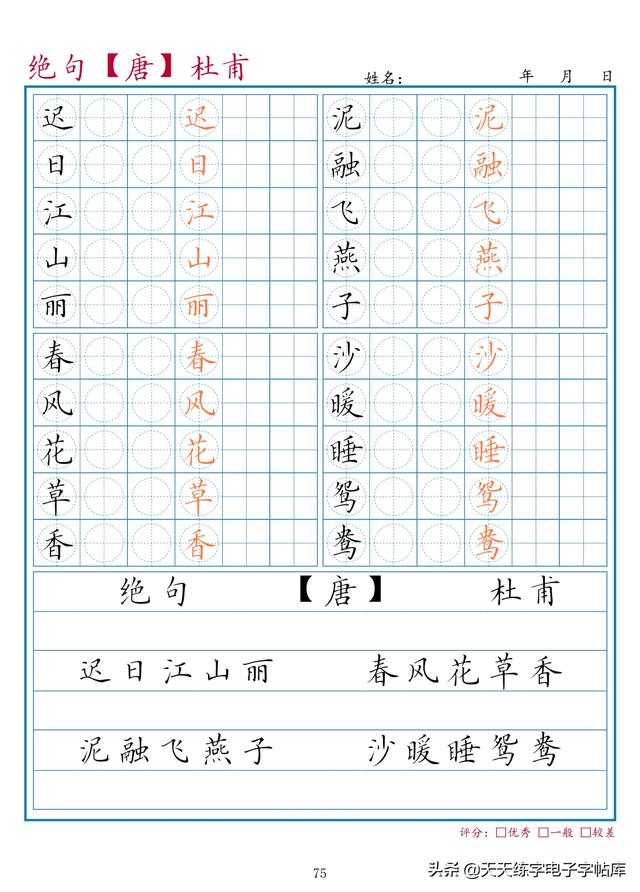 绝句【唐】杜甫
姓名： 年 月 日
迟 迟 泥 泥
日 日 融 融
江 江 飞 飞
山 山 燕 燕
丽 丽 子 子
春 春 沙 沙
风 风 暖 暖
花 花 睡 睡
草 草 鸳 鸳
香 香 鸯 鸯
绝句 【唐】 杜甫
迟日江山丽 春风花草香
泥融飞燕子 沙暖睡鸳鸯
评分：□优秀 □一般 □较差
75
头条@天天练字电子字帖库